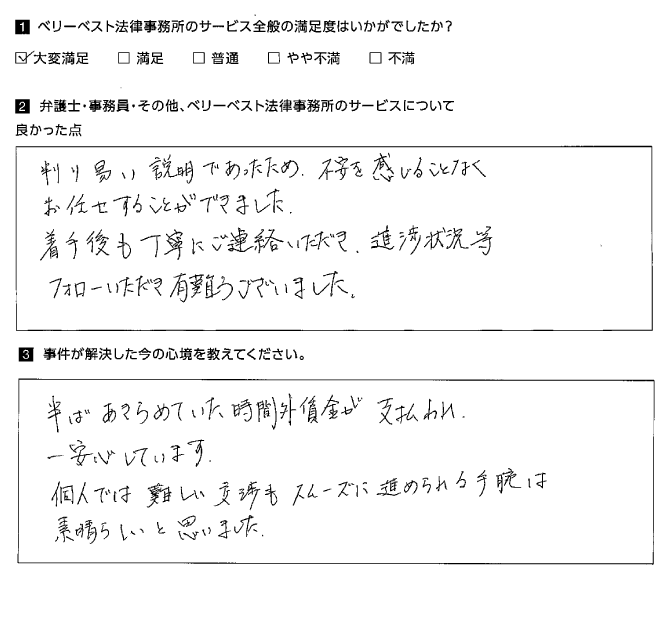 1 ベリーベスト法律事務所のサービス全般の満足度はいかがでしたか？
☑大変満足 □ 満足 □ 普通 □ やや不満 □ 不満
2 弁護士・事務員・その他、ベリーベスト法律事務所のサービスについて
良かった点
判り易い説明であったため、不安を感じることなく
お任せすることができました。
着手後も丁寧にご連絡いただき、進渉状況等
フォローいただき有難うございました。
3 事件が解決した今の心境を教えてください。
半ばあきらめていた時間外賃金が支払われ、
一安心しています。
個人では難しい交渉もスムーズに進められる手腕は
素晴らしいと思いました。